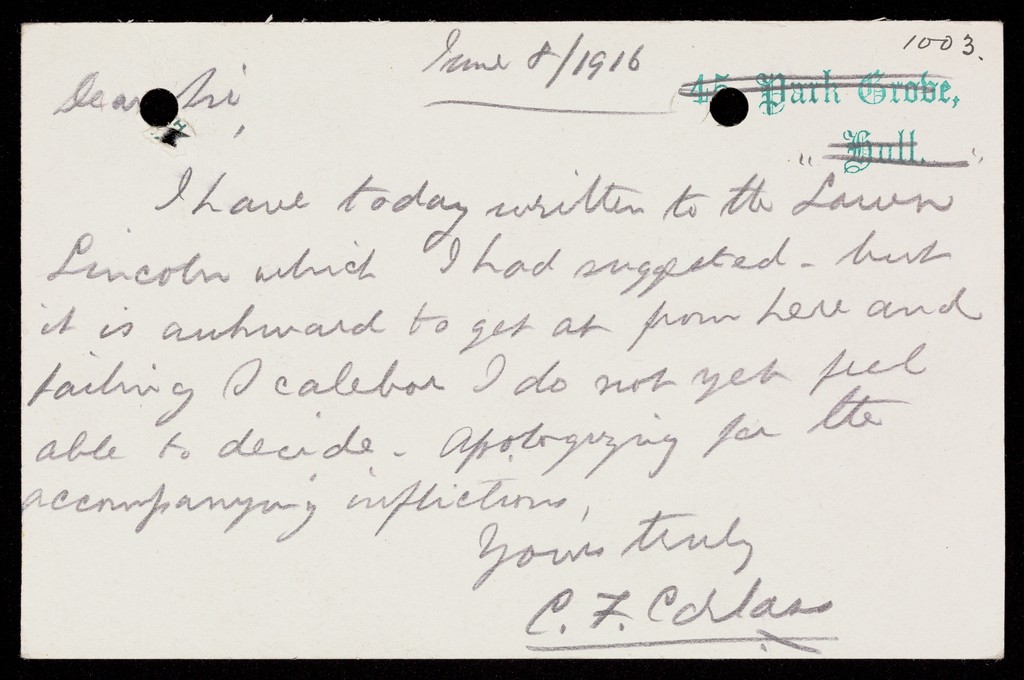 1003.
June 8/1916
45 Park Grove,
Dear Sir,
" Hull. "
I have today written to the Lawn
Lincoln which I had suggested - but
it is awkward to get at from here and
failing Scalebor I do not yet feel
able to decide. Apologizing for the
accompanying inflictions,
Yours truly
C. F. Corlass